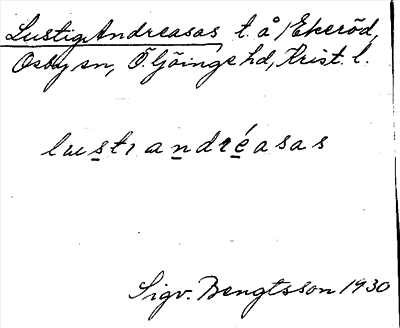 Lustig Andreasas t. å Ekeröd,
Osby sn, Ö. Göinge hd, Krist. l.
lustɩandréasas
Sigv. Bengtsson 1930